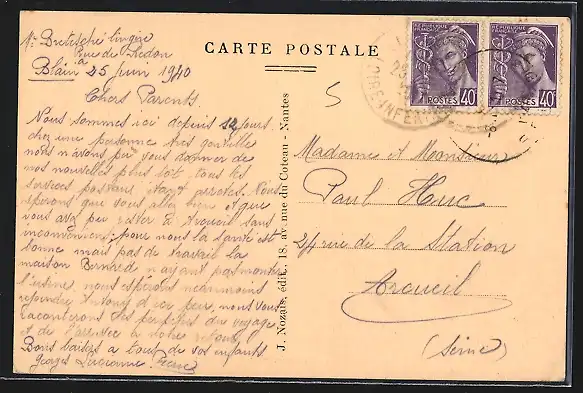 Mr Bretéché lingère
rue de Redon
à
Blain 25 juin 1940
Chers Parents
Nous sommes ici depuis 12 jours
chez une personne très gentille
nous n'avons pu vous donner de
nos nouvelles plus tôt tous les
services postaux étant arrêtés. Nous
espérons que vous allez bien et que
vous avez pu rester à Arcueil sans
inconvénient; pour nous la santé est
bonne mais pas de travail la
maison n'ayant pas monté
l'usine, nous espérons néanmoins
reprendre d'ici peu, nous vous
raconterons les péripéties du voyage
et de l'arrivée à notre retour,
Bons baisers à tous de vos enfants
Georges Lucienne Pierre
CARTE POSTALE
J. Nozais, édit., 18, av. nue du Coteau - Nantes
RÉPUBLIQUE FRANÇAISE
POSTES 40c
RÉPUBLIQUE FRANÇAISE
POSTES 40c
LOIRE-INFERRE
5
Madame et Monsieur
Paul Huc
24 rue de la Station
Arcueil
(Seine)